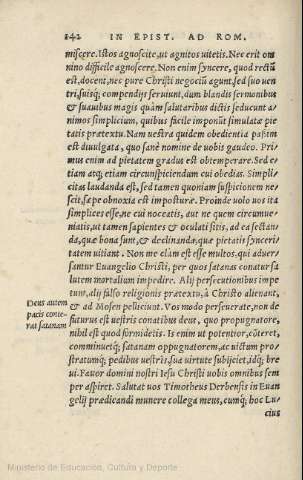 142 IN EPIST. AD ROM.
miscere. Istos agnoscite, ut agnitos uitetis. Nec erit om
nino difficile agnoscere. Non enim syncere, quod rectũ
est, docent, nec pure Christi negociũ agunt, sed suo uen
tri, suisq; compendijs seruiunt, dum blandis sermonibus
& suauibus magis quàm salutaribus dictis seducunt a-
nimos simplicium, quibus facile imponũt simulatæ pie
tatis prætextu. Nam uestra quidem obedientia passim
est diuulgata, quo sanè nomine de uobis gaudeo. Pri
mus enim ad pietatem gradus est obtemperare. Sed e-
tiam atq; etiam circunspiciendum cui obedias. Simpli-
citas laudanda est, sed tamen quoniam suspicionem ne-
scit, sæpe obnoxia est imposturæ. Proinde uolo uos ita
simplices esse, ne cui noceatis, aut ne quem circumue-
niatis, ut tamen sapientes & oculati sitis, ad ea sectan-
da, quæ bona sunt, & declinanda, quæ pietatis synceri-
tatem uitiant. Non me clàm est esse multos, qui aduer-
santur Euangelio Christi, per quos satanas conatur sa
lutem mortalium impedire. Alij persecutionibus impe
tunt, alij falso religionis prætextu, à Christo alienant,
& ad Mosen pelliciunt. Vos modo perseuerate, non de
Deus autem
pacis conte-
rat satanam
futurus est uestris conatibus deus, quo propugnatore,
nihil est quod formidetis. Is enim ut potentior, cõteret,
comminuetq; satanam oppugnatorem, ac uictum pro-
stratumq; pedibus uestris, sua uirtute subijciet, idq; bre
ui. Fauor domini nostri Iesu Christi uobis omnibus sem
per aspiret. Salutat uos Timotheus Derbensis in Euan
gelij prædicandi munere collega meus, eumq; hoc Lu-
cius
Ministerio de Educación, Cultura y Deporte